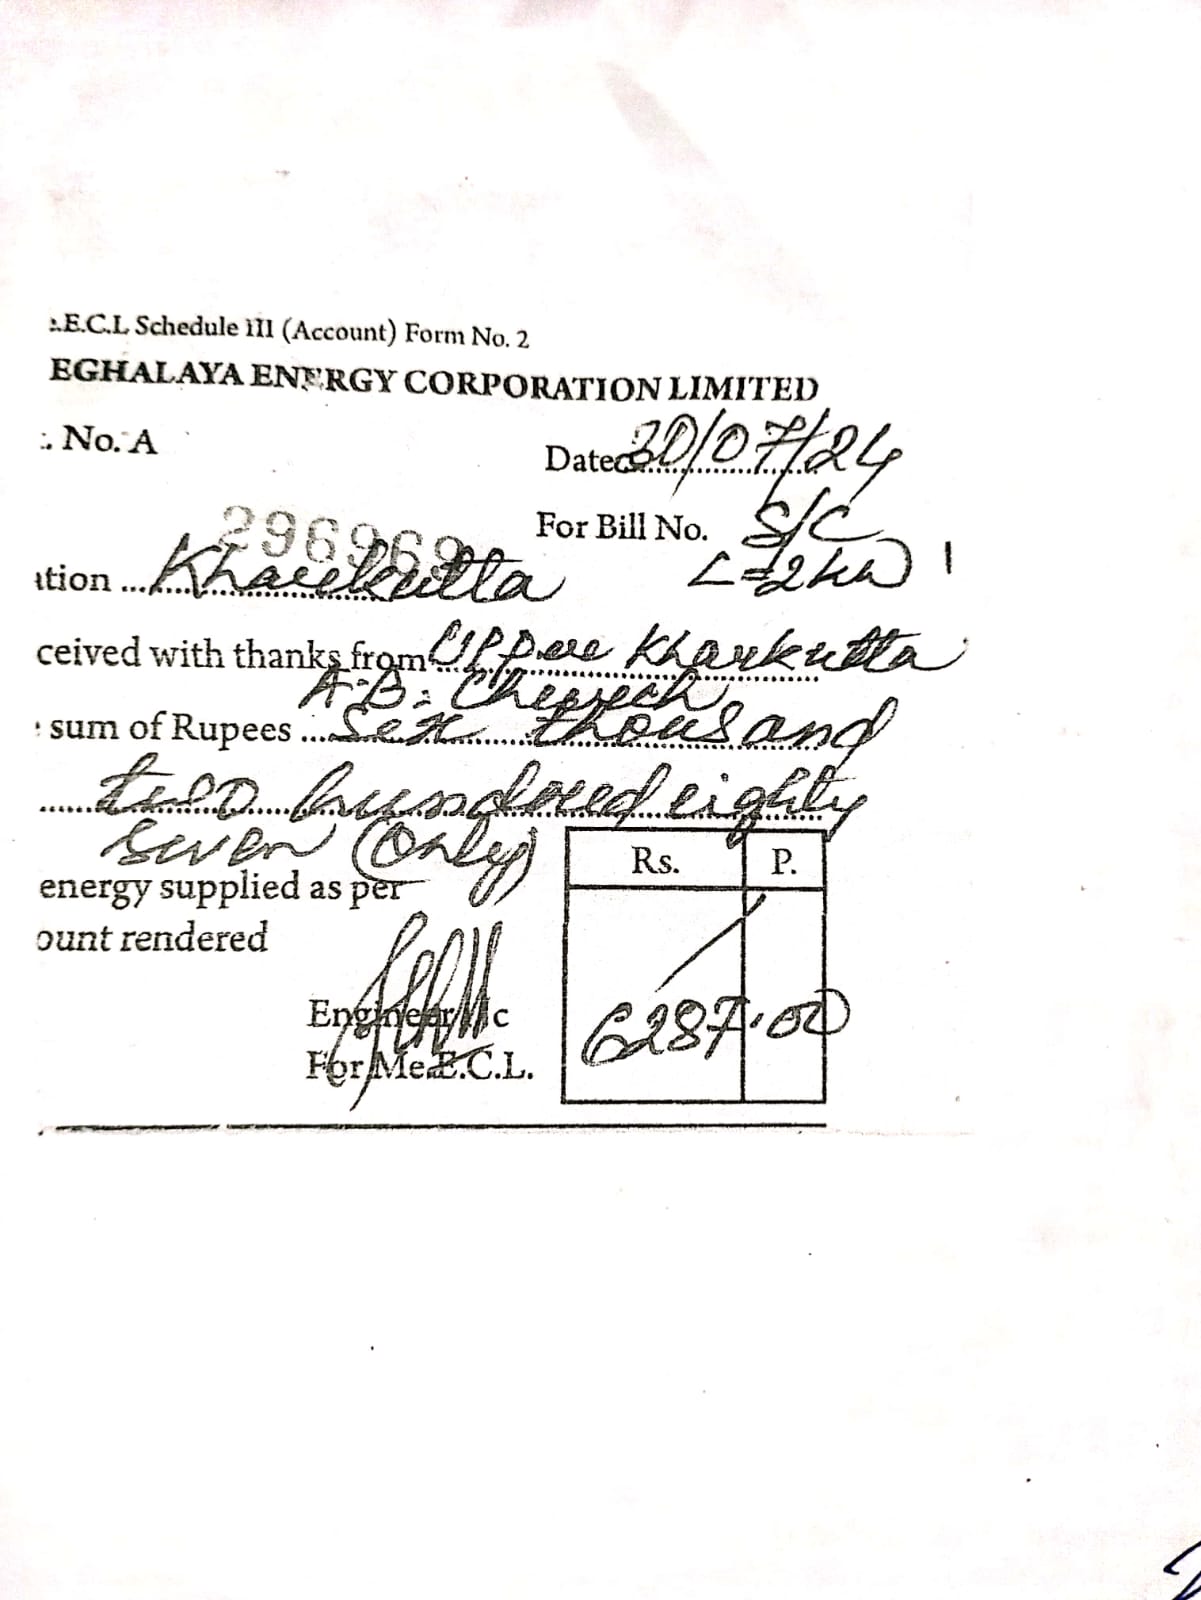 .E.C.L Schedule III (Account) Form No. 2
EGHALAYA ENERGY CORPORATION LIMITED
. No. A
Dated 30/07/24
296969
For Bill No. S/C
L=2kW
ation ... Kharkutta
ceived with thanks from Upper Kharkutta
A.B. Church
sum of Rupees ... Six thousand
two hundred eighty
seven (only)
Rs. P.
energy supplied as per
ount rendered
6287.00
Engineer I/c
For Me.E.C.L.